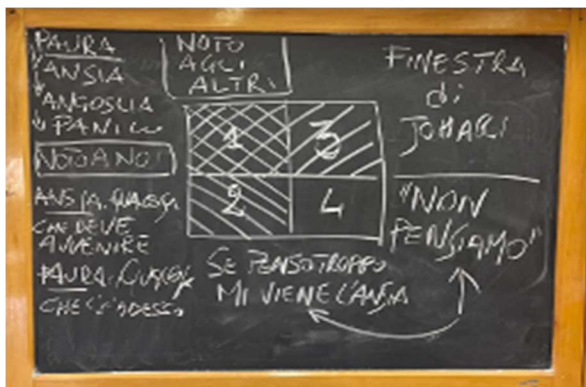 PAURA
ANSIA
ANGOSCIA
PANICO
NOTO A NOI
ANSIA. QUALCOSA
CHE DEVE
AVVENIRE
PAURA. QUALCOSA
CHE C'È ADESSO
NOTO
AGLI
ALTRI
1
3
2
4
SE PENSO TROPPO
MI VIENE L'ANSIA
FINESTRA
di
JOHARI
"NON
PENSIAMO"